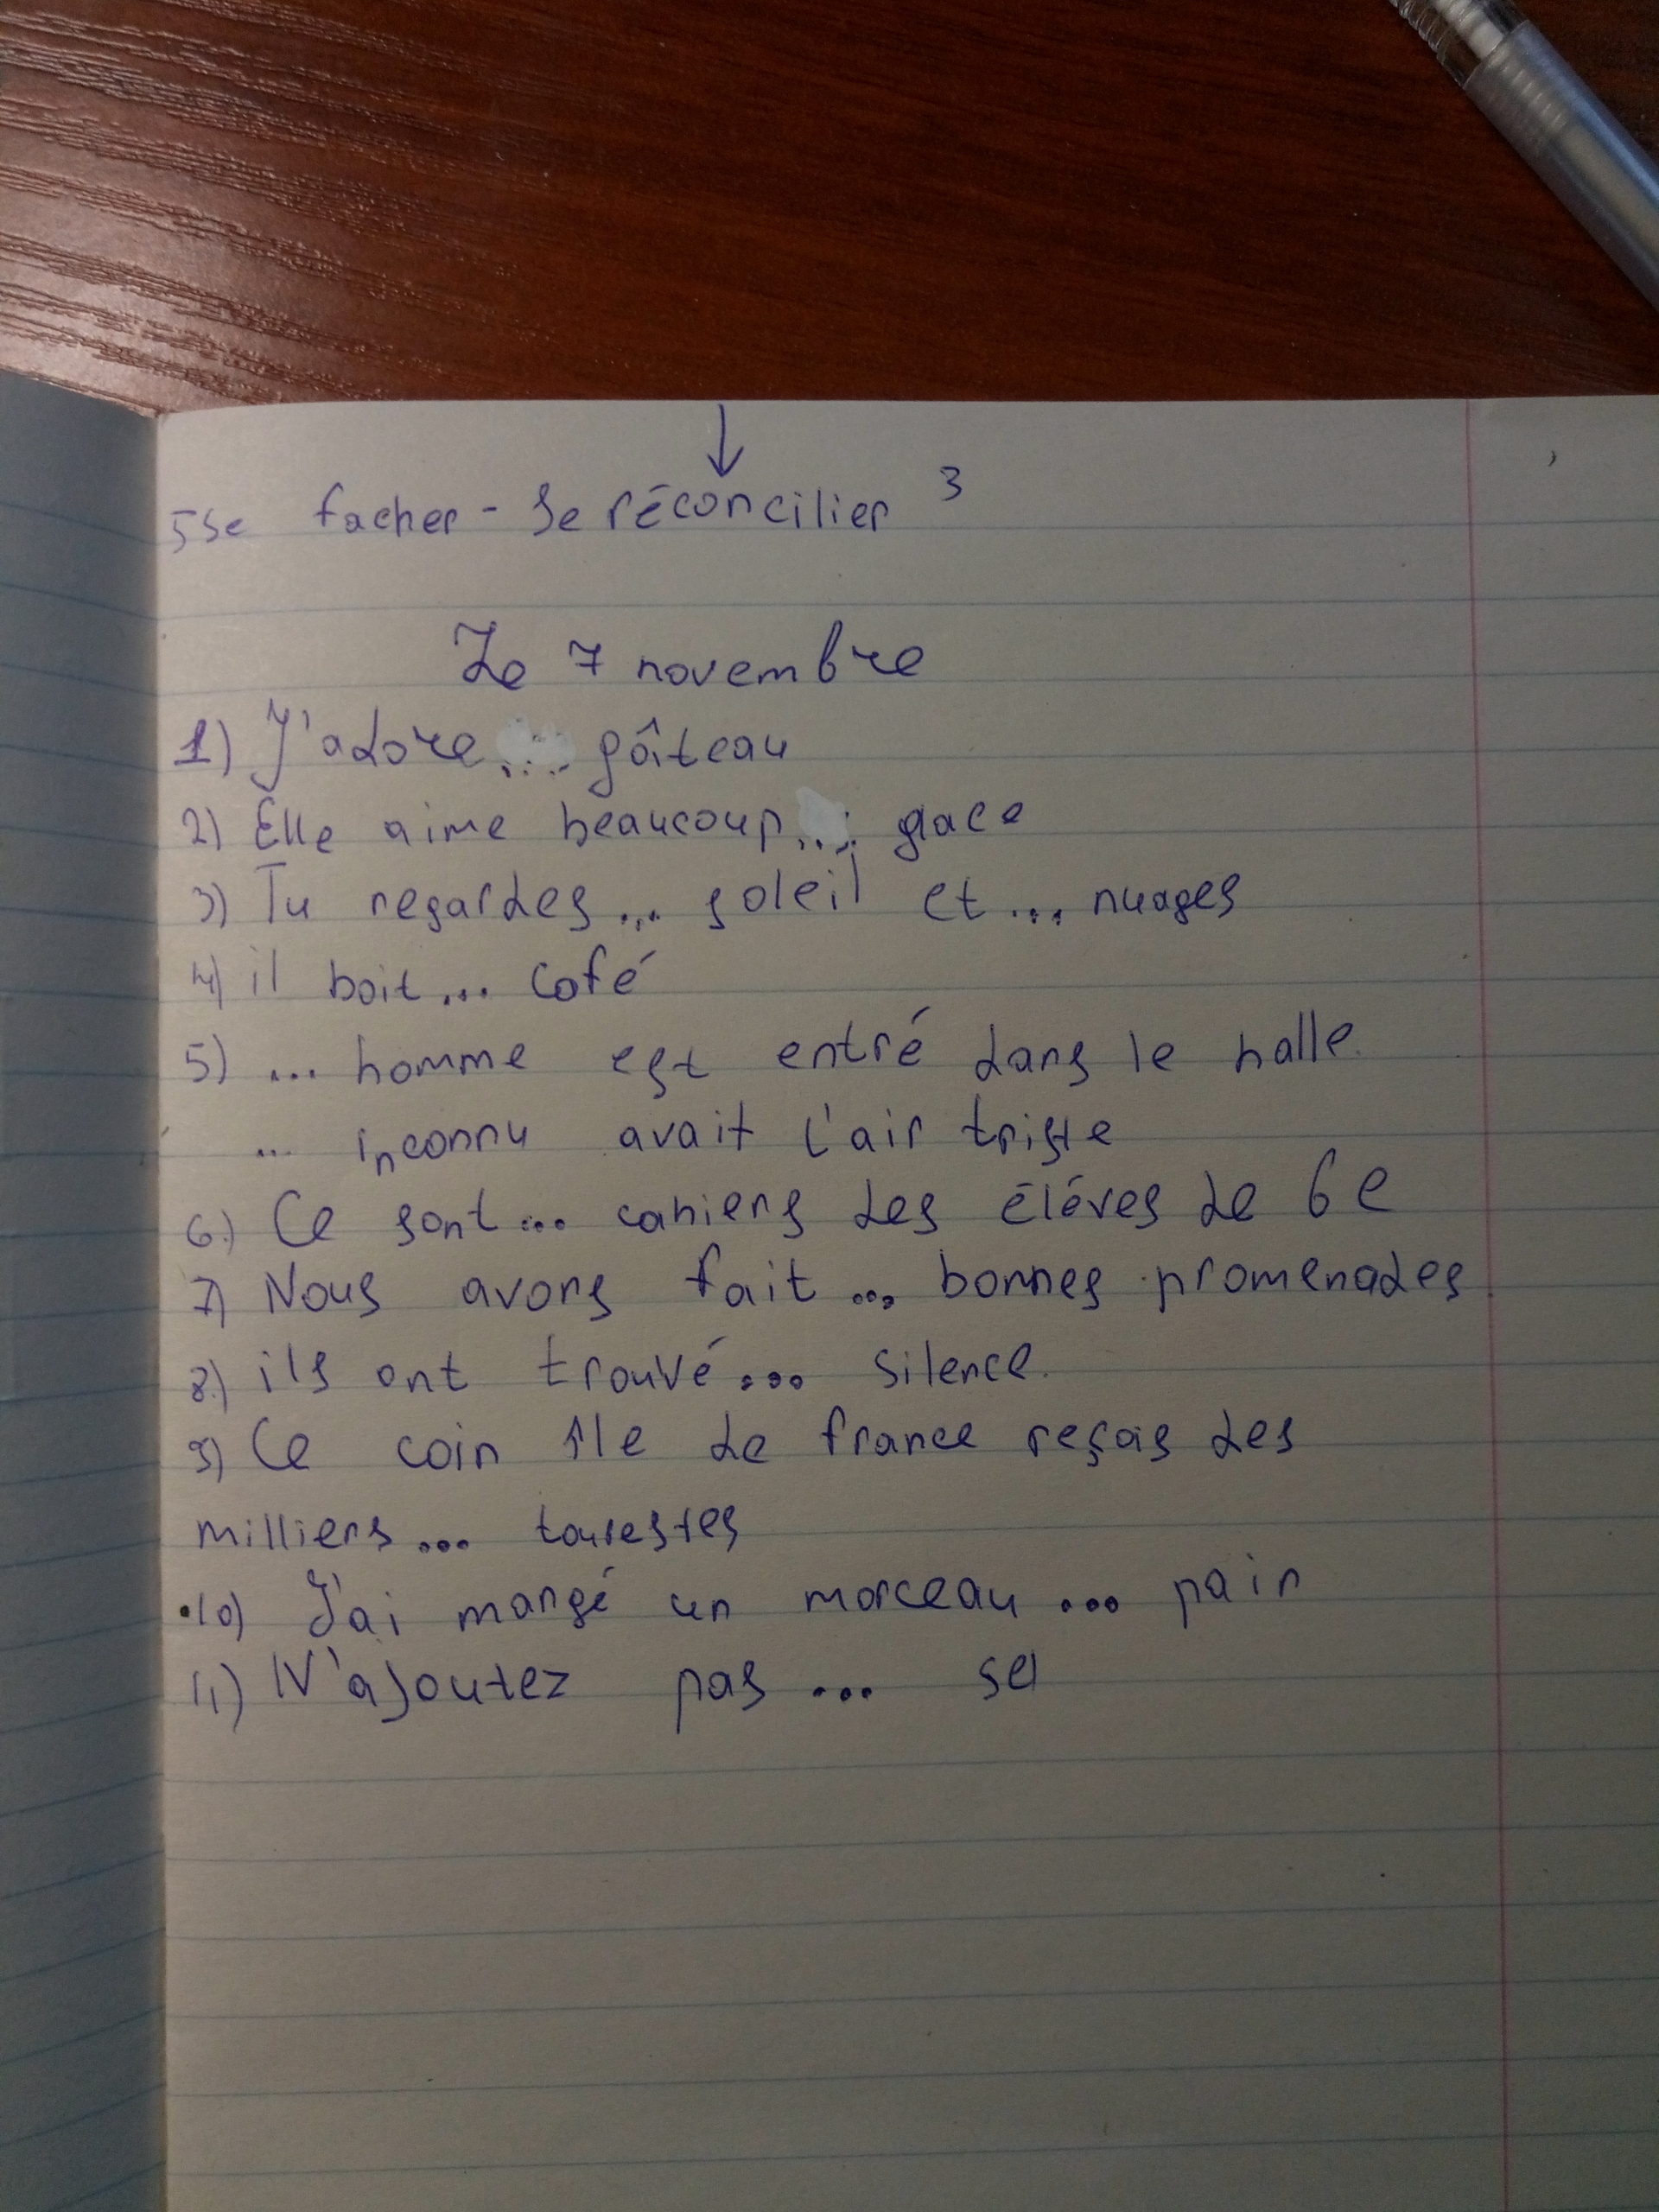 5 Se facher - Se réconcilier 3
Le 7 novembre
1) J'adore .... gâteau
2) Elle aime beaucoup ... glace
3) Tu regardes ... soleil et ... nuages
4) il boit ... cofé
5) ... homme est entré dans le halle.
... inconnu avait l'air triste
6.) Ce sont ... cahiers des éléves de 6e
7) Nous avons fait ... bonnes promenades.
8.) ils ont trouvé ... silence.
9) Ce coin île de france reçois des
milliers ... tourestes
10) J'ai mangé un morceau ... pain
11) N'ajoutez pas ... sel